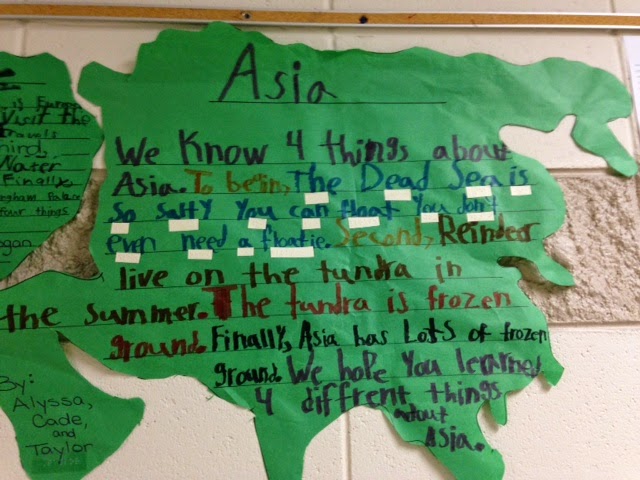 is Europe
Visit the
travels
Water
Finally,
four things
Asia
We Know 4 things about
Asia. To bein, The Dead Sea is
so salty you can float you don't
even need a floatie. Second, Reindeer
live on the tundra in
the summer. The tundra is frozen
ground. Finally, Asia has LoTs of frozen
ground. We hope You learned
4 diffrent things
about
Asia.
By:
Alyssa,
Cade,
and
Taylor